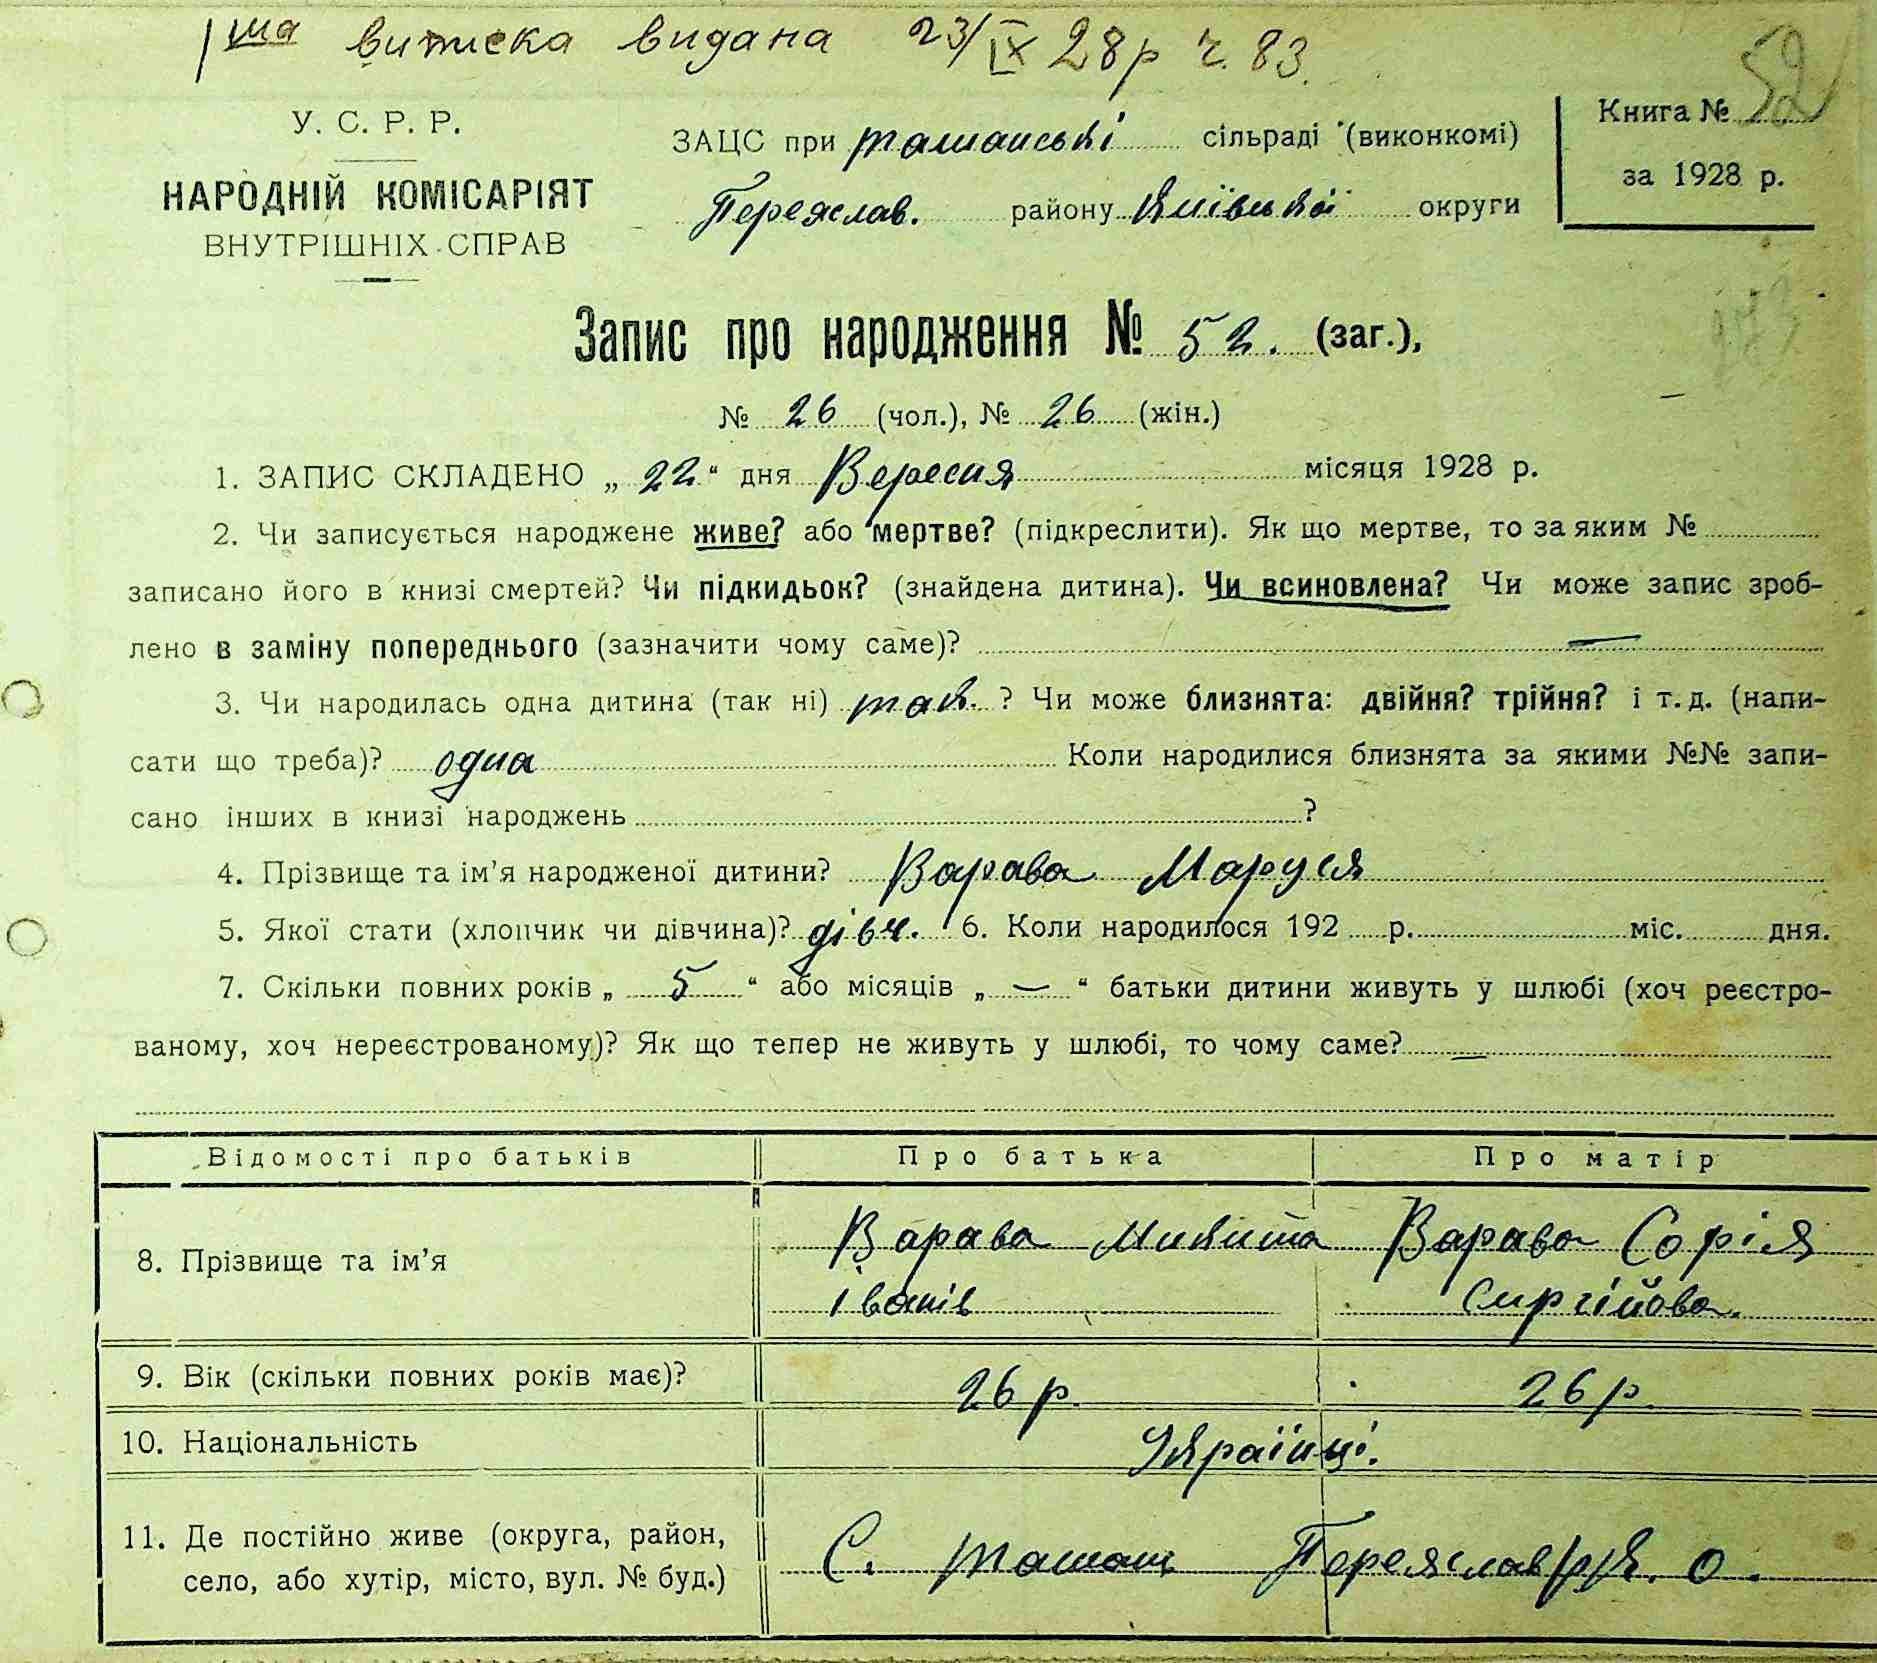 1ша виписка видана 23/IX 28р ч. 83.
У. С. Р. Р.
НАРОДНІЙ КОМІСАРІЯТ
ВНУТРІШНІХ СПРАВ
ЗАЦС при ташанські сільраді (виконкомі)
Переяслав. району Київської округи
Книга № 52
за 1928 р.
Запис про народження № 52. (заг.),
№ 26 (чол.), № 26 (жін.)
1. ЗАПИС СКЛАДЕНО „ 22 “ дня Вересня місяця 1928 р.
2. Чи записується народжене живе? або мертве? (підкреслити). Як що мертве, то за яким №
записано його в книзі смертей? Чи підкидьок? (знайдена дитина). Чи всиновлена? Чи може запис зроб-
лено в заміну попереднього (зазначити чому саме)? —
3. Чи народилась одна дитина (так ні) так. ? Чи може близнята: двійня? трійня? і т. д. (напи-
сати що треба)? одна Коли народилися близнята за якими №№ запи-
сано інших в книзі народжень ?
4. Прізвище та ім’я народженої дитини? Варава Маруся
5. Якої стати (хлопчик чи дівчина)? дівч. 6. Коли народилося 192 р. міс. дня.
7. Скільки повних років „ 5 “ або місяців „ — “ батьки дитини живуть у шлюбі (хоч реєстро-
ваному, хоч нереєстрованому)? Як що тепер не живуть у шлюбі, то чому саме? —
Відомості про батьків Про батька Про матір
8. Прізвище та ім’я Варава Микита Варава Софія
Іванів Сиргійова.
9. Вік (скільки повних років має)? 26 р. 26 р.
10. Національність Українці.
11. Де постійно живе (округа, район,
село, або хутір, місто, вул. № буд.) С. ташань Переяслав р. о.